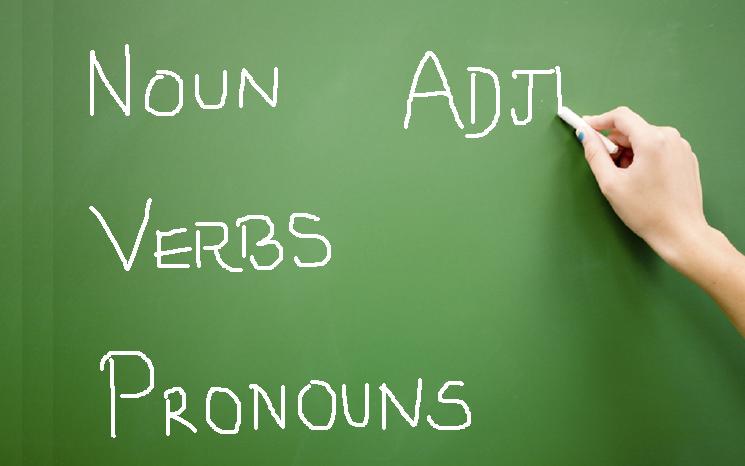 NOUN ADJ
VERBS
PRONOUNS